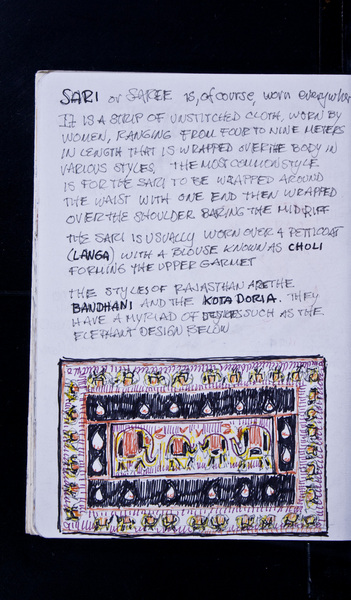 SARI or SAREE is, of course, worn everywher
IT IS A STRIP OF UNSTITCHED CLOTH, WORN BY
WOMEN, RANGING FROM FOUR TO NINE METERS
IN LENGTH THAT IS WRAPPED OVER THE BODY IN
VARIOUS STYLES. THE MOST COMMON STYLE
IS FOR THE SARI TO BE WRAPPED AROUND
THE WAIST WITH ONE END THEN WRAPPED
OVER THE SHOULDER BARING THE MIDRIFF
THE SARI IS USUALLY WORN OVER A PETTICOAT
(LANGA) WITH A BLOUSE KNOWN AS CHOLI
FORMING THE UPPER GARMET
THE STYLES OF RAJASTHAN ARE THE
BANDHANI AND THE KOTA DORIA. THEY
HAVE A MYRIAD OF SUCH AS THE
ELEPHANT DESIGN BELOW